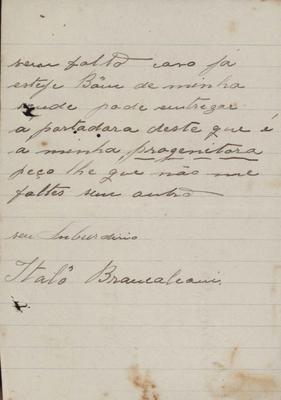 falto caro já
esteje Bôm de minha
saude pode entregar
a portadora deste que é
a minha progenitora
peço lhe que não me
faltes sem outro
seu
Italo Brancaleoni